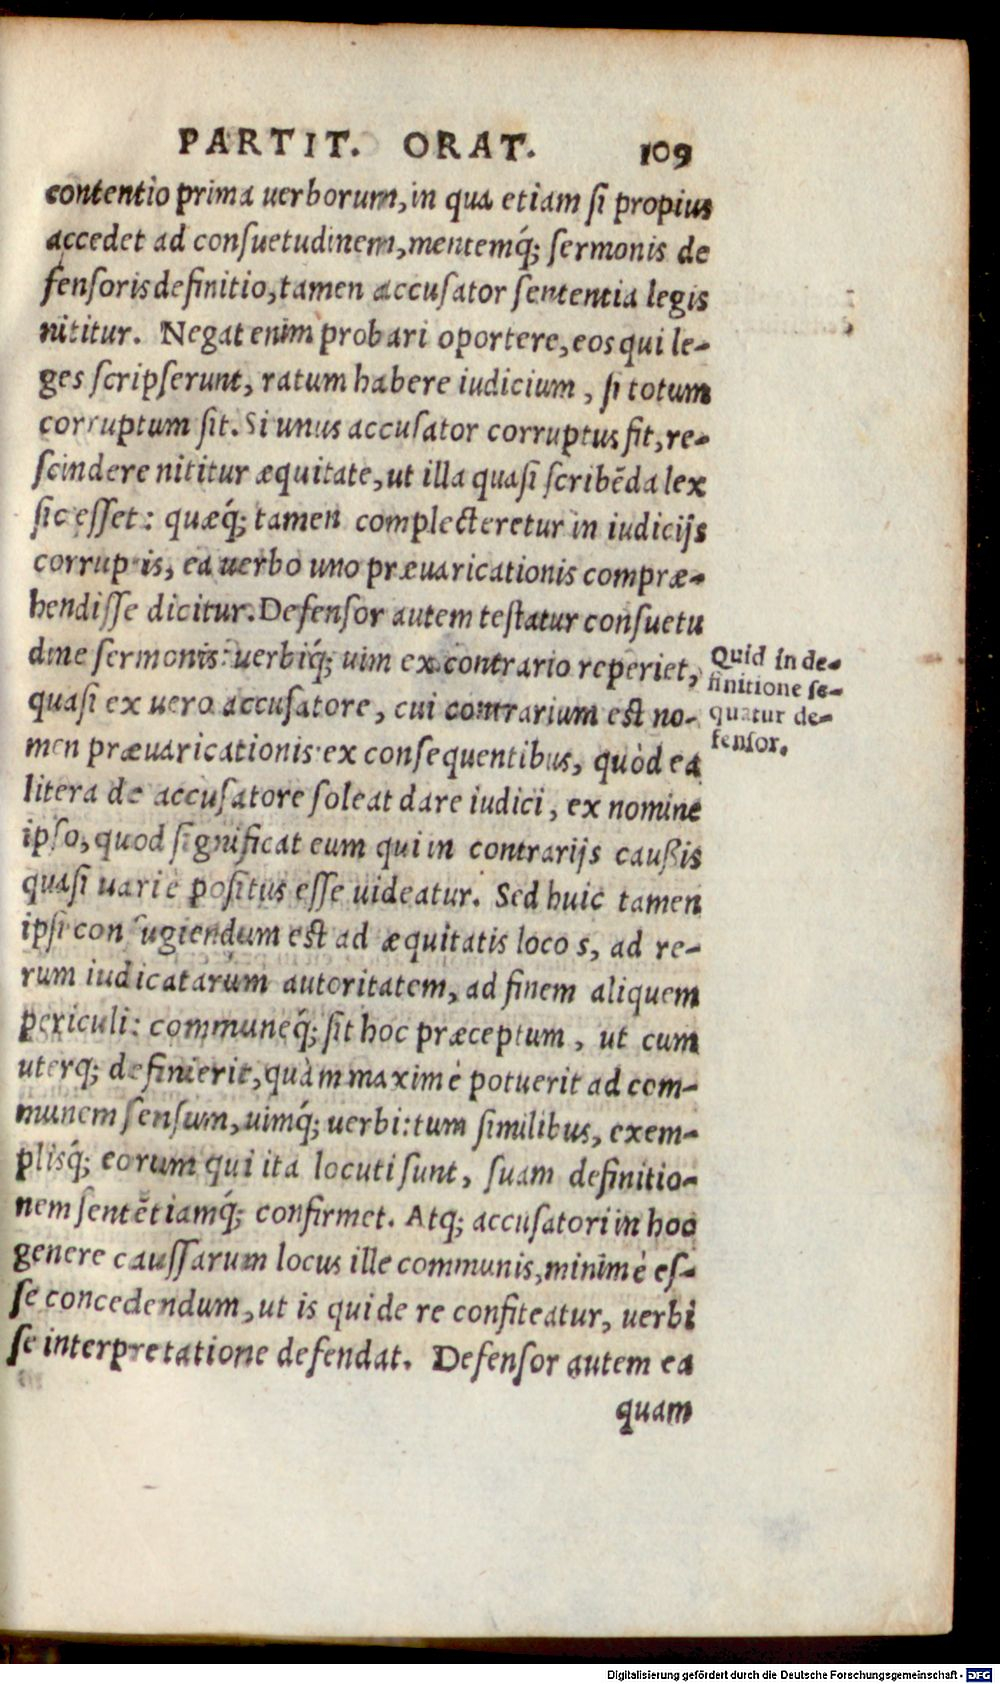 PARTIT. ORAT. 109
contentio prima uerborum, in qua etiam si propius
accedet ad consuetudinem, mentemq́; sermonis de
fensoris definitio, tamen accusator sententia legis
nititur. Negat enim probari oportere, eos qui le-
ges scripserunt, ratum habere iudicium, si totum
corruptum sit. Si unus accusator corruptus sit, re-
scindere nititur æquitate, ut illa quasi scribēda lex
sic esset: quæq́; tamen complecteretur in iudicijs
corrup is, ea uerbo uno præuaricationis compræ-
hendisse dicitur. Defensor autem testatur consuetu
dine sermonis: uerbiq́; uim ex contrario reperiet,
quasi ex uero accusatore, cui contrarium est no-
men præuaricationis: ex consequentibus, quòd ea
litera de accusatore soleat dare iudici, ex nomine
ipso, quod significat eum qui in contrarijs caußis
quasi uariè positus esse uideatur. Sed huic tamen
ipsi confugiendum est ad æquitatis locos, ad re-
rum iudicatarum autoritatem, ad finem aliquem
periculi: communeq́; sit hoc præceptum, ut cum
uterq; definierit, quàm maximè potuerit ad com-
munem sensum, uimq́; uerbi: tum similibus, exem-
plisq́; eorum qui ita locuti sunt, suam definitio-
nem sentētiamq́; confirmet. Atq; accusatori in hoc
genere caussarum locus ille communis, minimè es-
se concedendum, ut is qui de re confiteatur, uerbi
se interpretatione defendat. Defensor autem ea
quam
Quid in de-
finitione se-
quatur de-
fensor.
Digitalisierung gefördert durch die Deutsche Forschungsgemeinschaft - DFG